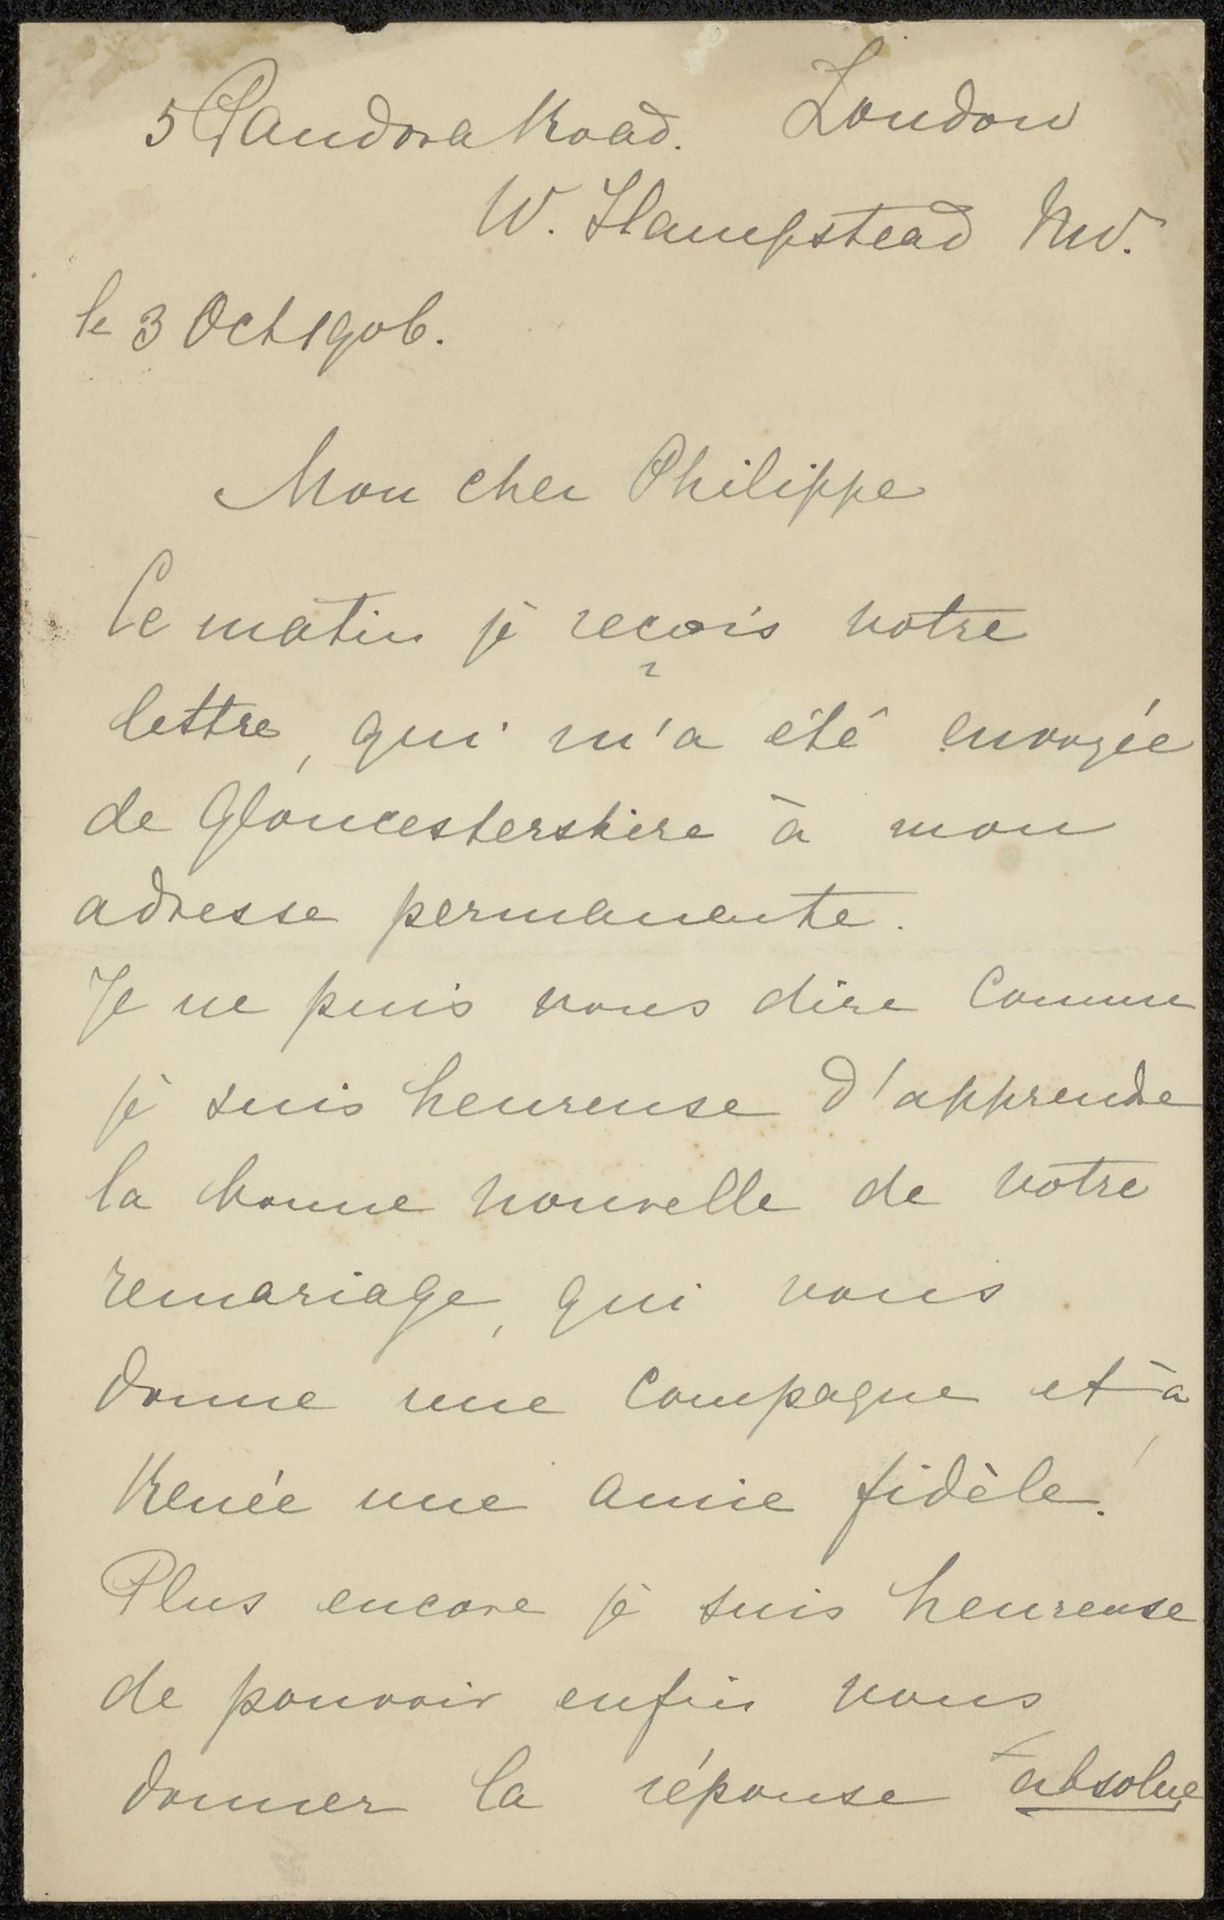 5 Pandora Road. London
W. Hampstead NW.
le 3 Oct 1906.
Mon cher Philippe
Ce matin je reçois votre
lettre, qui m'a été envoyée
de Gloucestershire à mon
adresse permanente.
Je ne puis vous dire comme
je suis heureuse d'apprendre
la bonne nouvelle de votre
remariage, qui vous
donne une compagne et à
Renée une amie fidèle.
Plus encore je suis heureuse
de pouvoir enfin vous
donner la réponse absolue